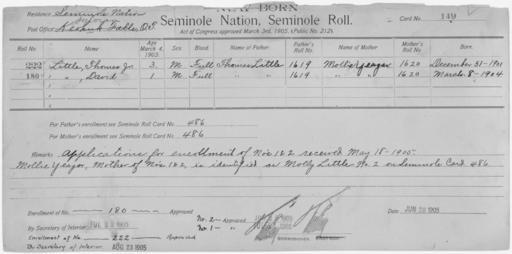 NEW BORN
Residence Seminole Nation
Seminole Nation, Seminole Roll.
Card No. 149
Post Office Keokuk Falls, O.T.
Act of Congress approved March 3rd, 1905. (Public No. 212).
Roll No. Name Age March 4, 1905. Sex Blood. Name of Father. Father's Roll No. Name of Mother. Mother's Roll No. Born.
222 Little, Thomas Jr. 3 M Full Thomas Little 1619 Mollie Yeager 1620 December 31-1901
180 " , David 1 M Full " " 1619 " " 1620 March 8-1904
For Father's enrollment see Seminole Roll Card No. 486
For Mother's enrollment see Seminole Roll Card No. 486
Remarks Applications for enrollment of Nos 1 & 2 received May 18-1905.
Mollie Yeager, Mother of Nos 1 & 2 is identified as Molly Little No 2 on Seminole Card 486
Enrollment of No 180 Approved
Date JUN 28 1905
By Secretary of Interior JUL 22 1905
No. 2-Approved
No. 1- " "
Enrollment of No 222 Approved
By Secretary of Interior AUG 23 1905